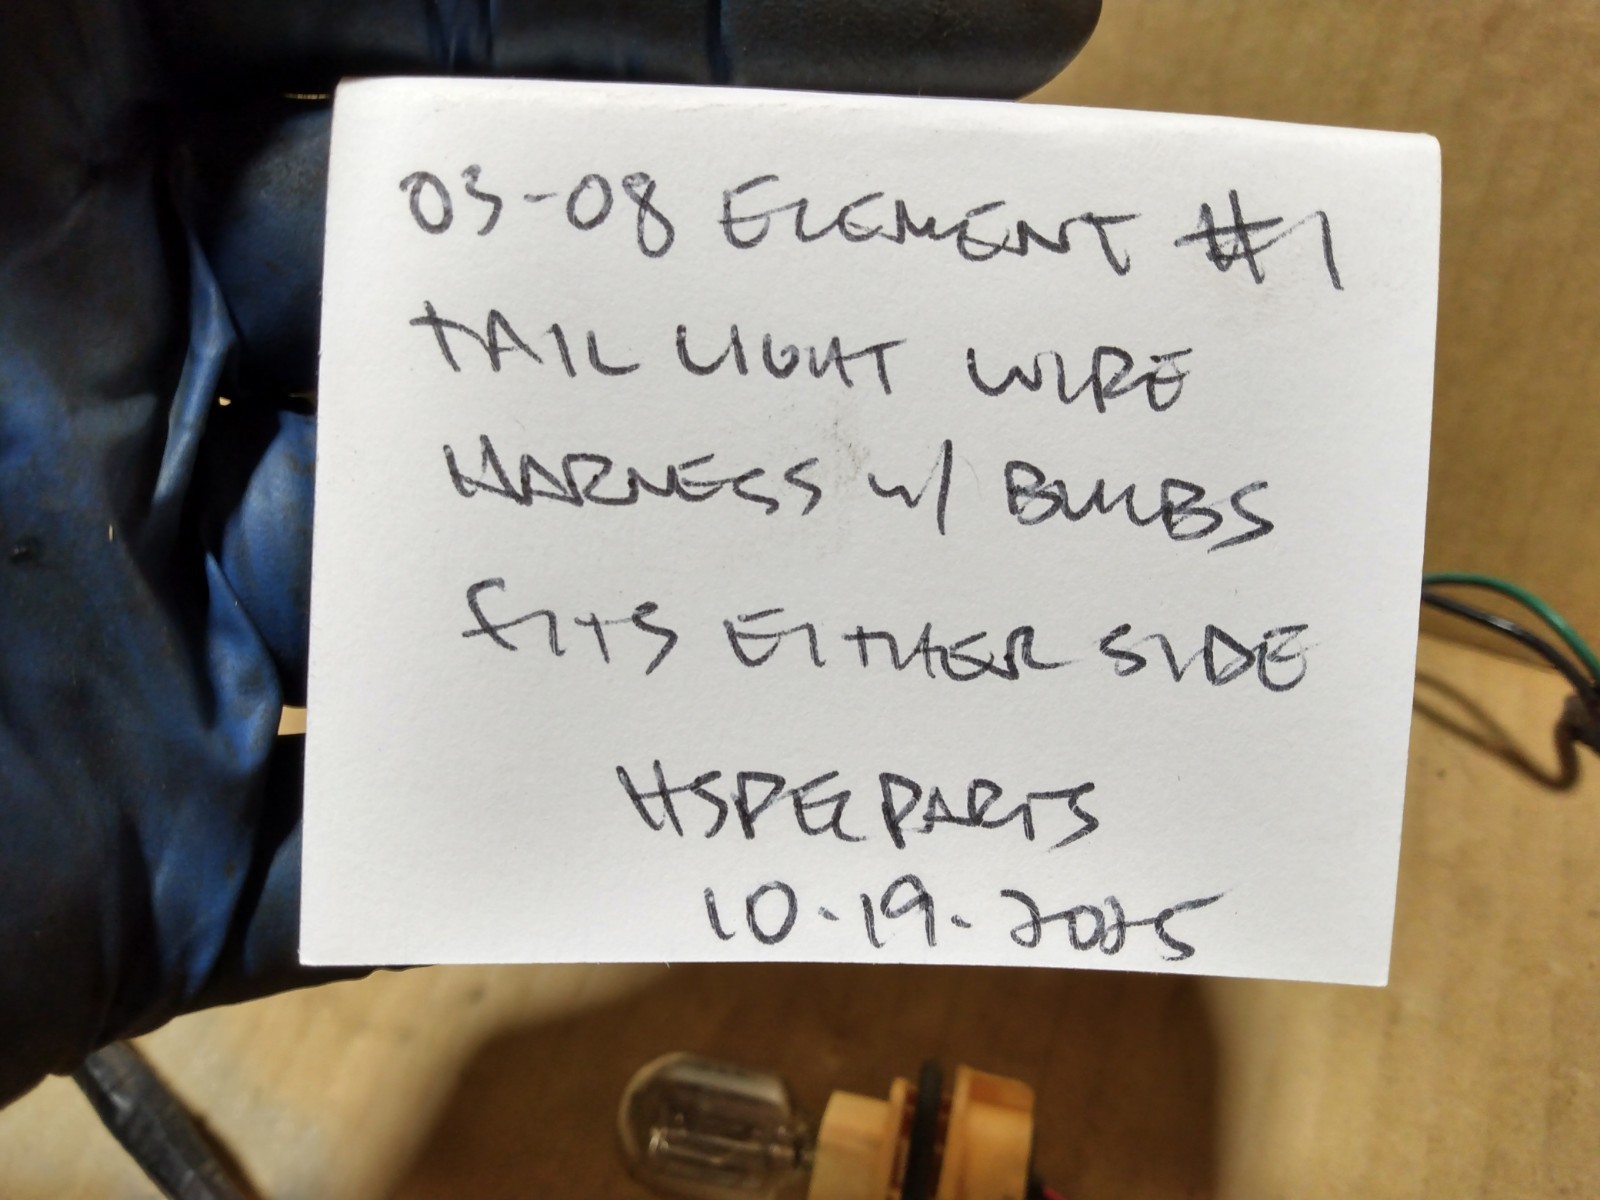 03-08 ELEMENT #1
TAIL LIGHT WIRE
HARNESS w/ BULBS
FITS EITHER SIDE
HSPEPARTS
10-19-2025